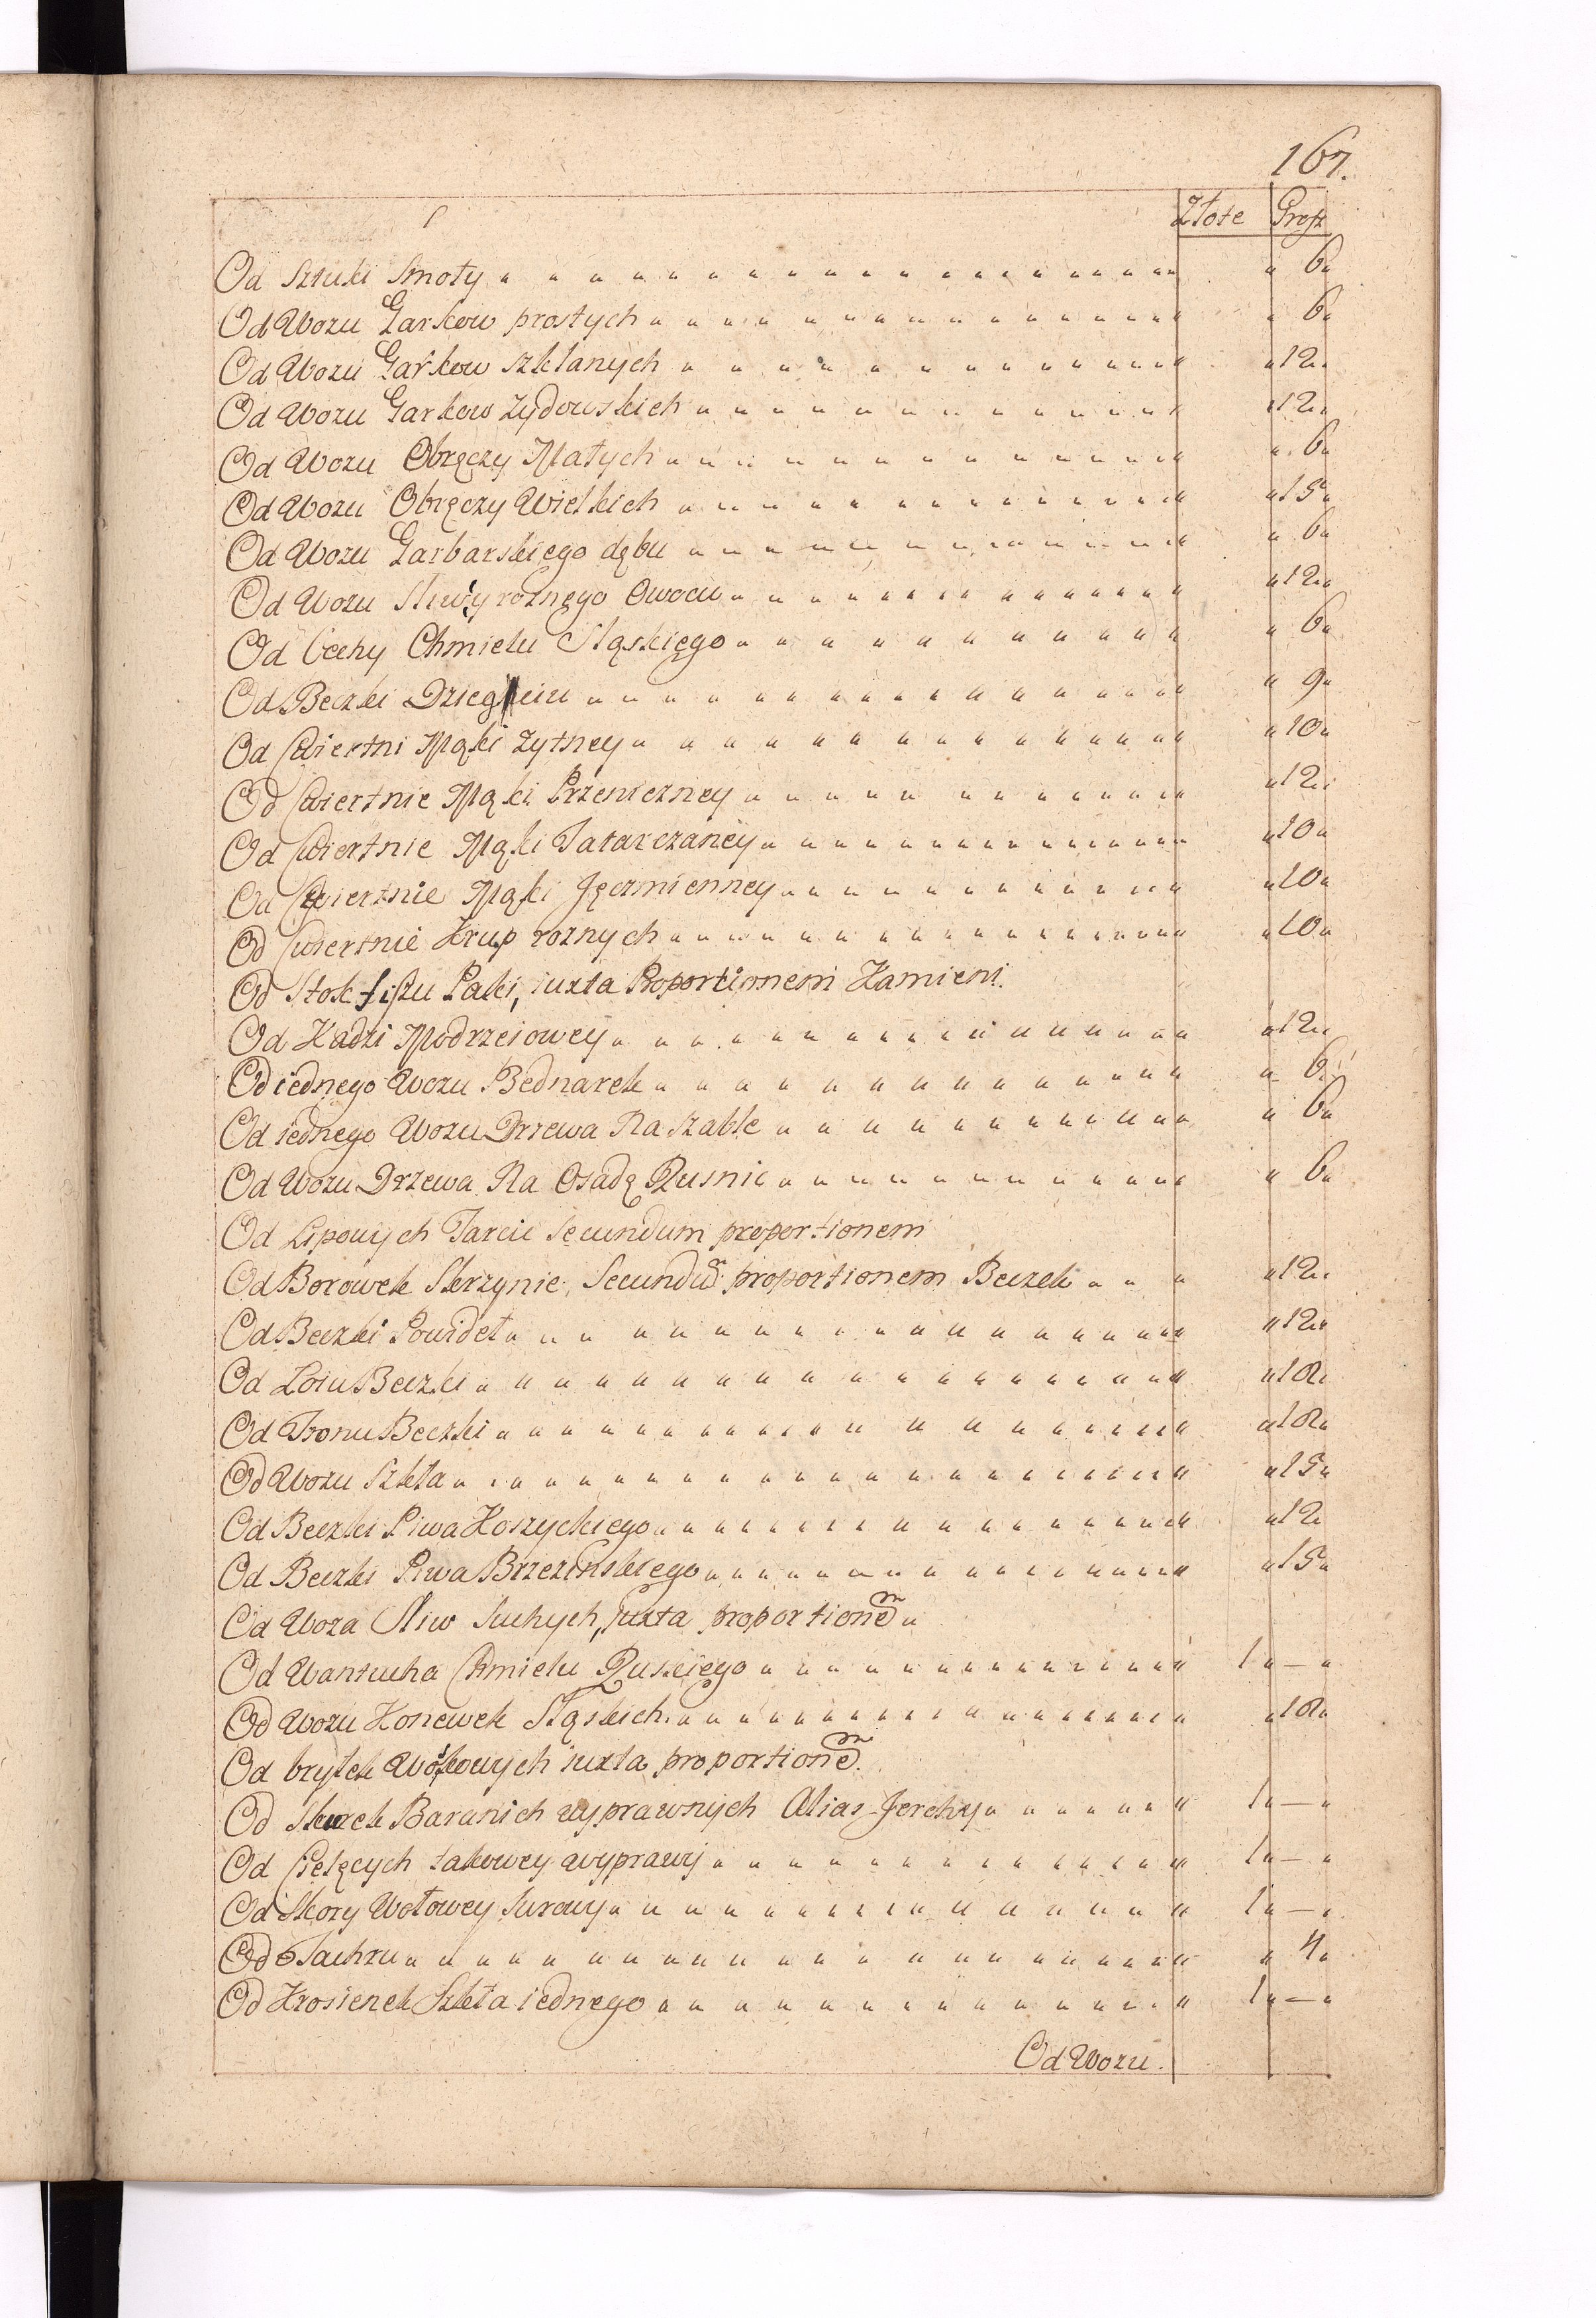 167.
Złote Grosz
Od Sztuki Smoły " 6
Od Wozu Garkow prostych " 6
Od Wozu Garkow szklanych " 12
Od Wozu Garkow Zydowskich " 12
Od Wozu Obręczy Małych " 6
Od Wozu Obręczy Wielkich " 15
Od Wozu Garbarskiego dębu " 6
Od Wozu Sliwy rożnego Owocu " 12
Od Cechy Chmielu Sląskięgo " 6
Od Beczki Dziegciu " 9
Od Cwiertni Mąki Zytney " 10
Od Cwiertnie Mąki Przeniczney " 12
Od Cwiertnie Mąki Tatarczaney " 10
Od Cwiertnie Mąki Jęczmienney " 10
Od Cwiertnie Krup roznych " 10
Od Stokfiszu Paki, iuxta Proportionem Kamieni.
Od Kadzi Modrzeiowey " 12
Od iednego Wozu Bednarek " 6
Od iednego Wozu Drzewa Na szable " 6
Od Wozu Drzewa Na Osadę Rusnic " 6
Od Lipowych Tarcic secundum proportionem
Od Borowek Skrzynie, Secundum proportionem Beczek " 12
Od Beczki Powideł " 12
Od Łoiu Beczki " 18
Od Tronu Beczki " 18
Od Wozu Szkła " 15
Od Beczki Piwa Koszyckiego " 12
Od Beczki Piwa Brzezinskiego " 15
Od Woza Sliw Suchych, juxta proportionem "
Od Wantucha Chmielu Ruskiego 1 " — "
Od Wozu Konewek Sląskich " 18
Od brytek Woskowych iuxta proportionem.
Od Skurek Baranich wyprawnych Alias Jerchy 1 " — "
Od Cielęcych takowey wyprawy 1 " — "
Od Skory Wołowey Surowy 1 " — "
Od Tuchru " 4
Od Krosienek Szkła iednego 1 " — "
Od Wozu.